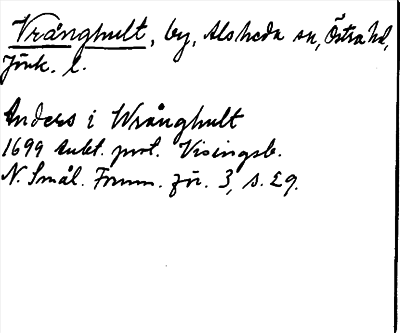 Vrånghult, by, Alsheda sn, Östra hd,
Jönk. l.
Anders i Wrånghult
1699 Aukt. prot. Visingsb.
N. Smål. Fornm. för. 3, s. 29.